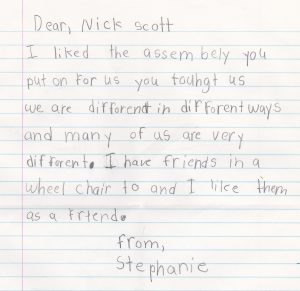 Dear, Nick scott
I liked the assembely you
put on for us you touhgt us
we are differendt in different ways
and many of us are very
different. I have friends in a
wheel chair to and I like them
as a friend.
from,
Stephanie